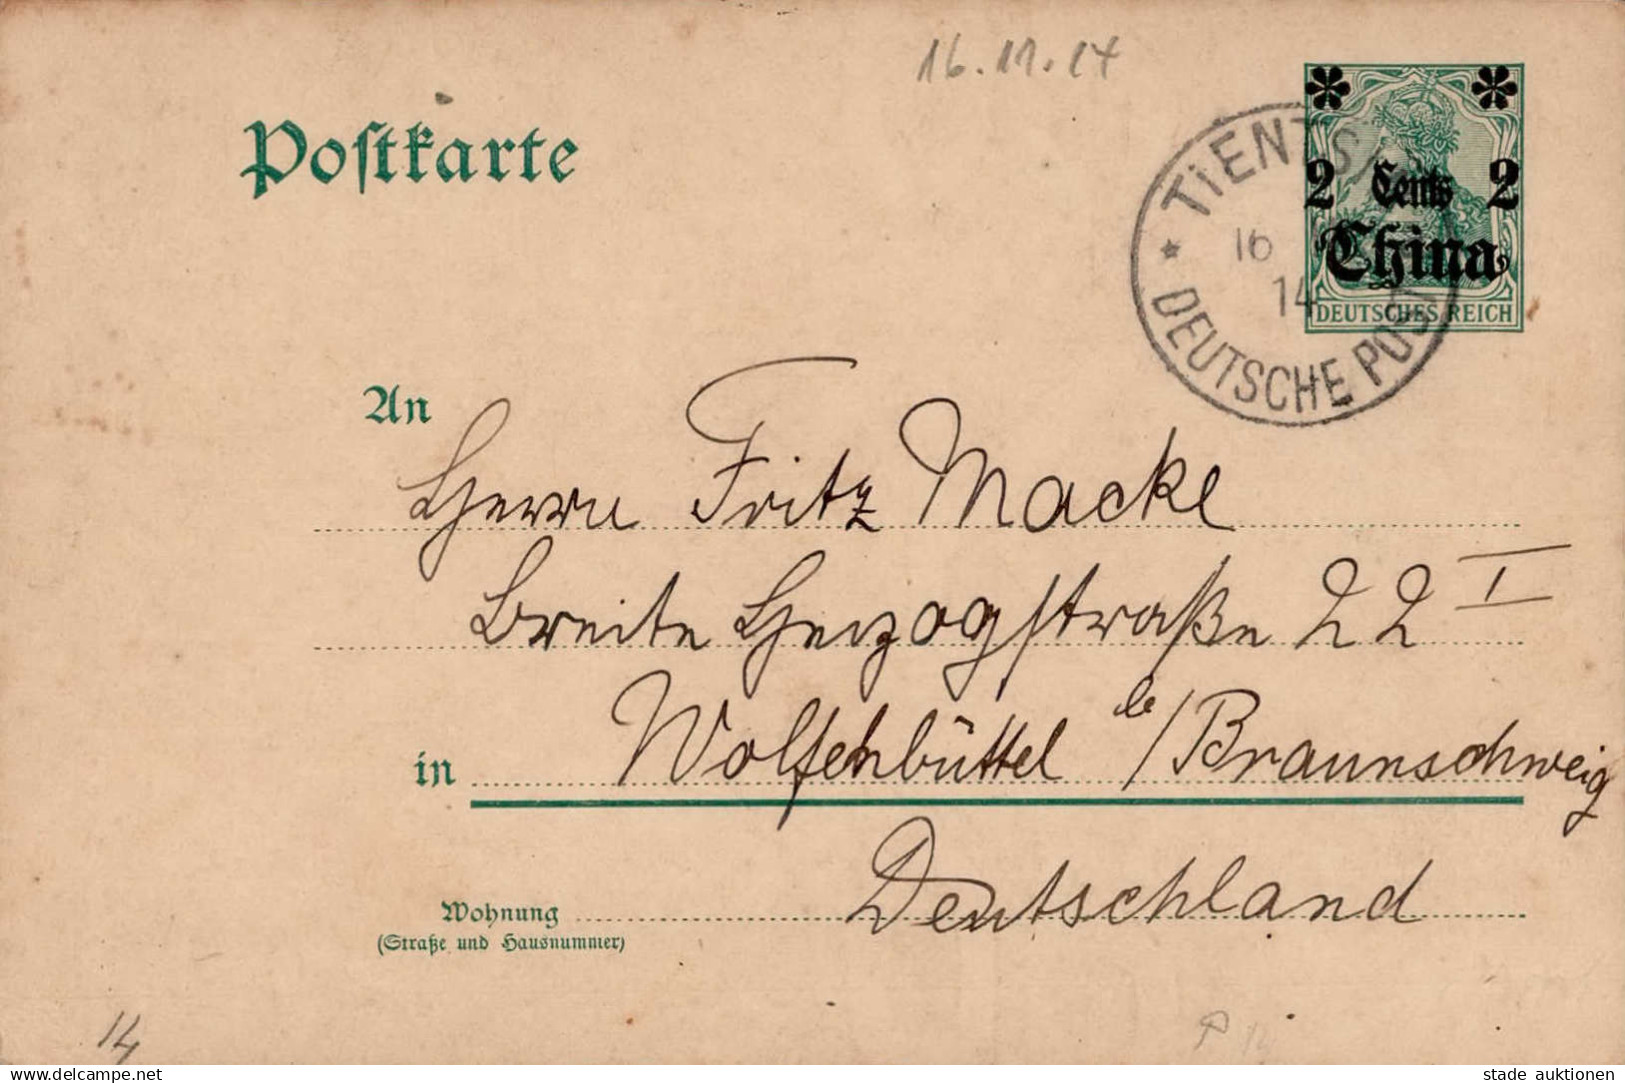 16.11.14
Postkarte
2 Cents 2
China
DEUTSCHES REICH
TIENTSIN
16
14
DEUTSCHE POST
An
Herrn Fritz Macke
Breite Herzogstraße 22 I
in Wolfenbüttel b/Braunschweig
Deutschland
Wohnung
(Straße und Hausnummer)
14
P 14
www.delcampe.net
stade auktionen